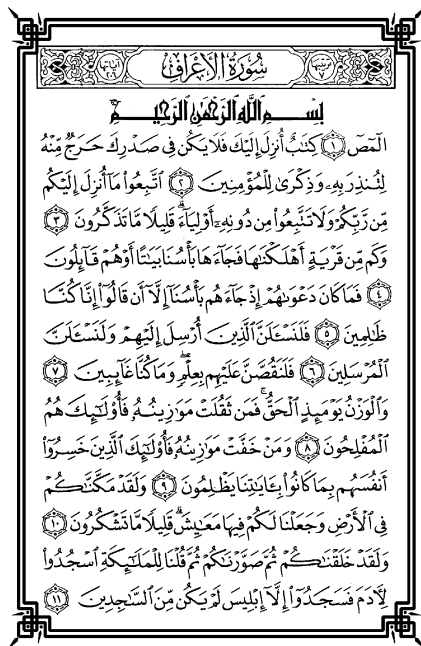 ترتيبها ٧ سُورَةُ الأَعْرَافِ آياتها ٢٠٦
بِسْمِ اللَّهِ الرَّحْمَٰنِ الرَّحِيمِ
الٓمٓصٓ ١ كِتَٰبٌ أُنزِلَ إِلَيْكَ فَلَا يَكُن فِى صَدْرِكَ حَرَجٌ مِّنْهُ
لِتُنذِرَ بِهِۦ وَذِكْرَىٰ لِلْمُؤْمِنِينَ ٢ ٱتَّبِعُوا۟ مَآ أُنزِلَ إِلَيْكُم
مِّن رَّبِّكُمْ وَلَا تَتَّبِعُوا۟ مِن دُونِهِۦٓ أَوْلِيَآءَ ۗ قَلِيلًا مَّا تَذَكَّرُونَ ٣
وَكَم مِّن قَرْيَةٍ أَهْلَكْنَٰهَا فَجَآءَهَا بَأْسُنَا بَيَٰتًا أَوْ هُمْ قَآئِلُونَ
٤ فَمَا كَانَ دَعْوَىٰهُمْ إِذْ جَآءَهُم بَأْسُنَآ إِلَّآ أَن قَالُوٓا۟ إِنَّا كُنَّا
ظَٰلِمِينَ ٥ فَلَنَسْـَٔلَنَّ ٱلَّذِينَ أُرْسِلَ إِلَيْهِمْ وَلَنَسْـَٔلَنَّ
ٱلْمُرْسَلِينَ ٦ فَلَنَقُصَّنَّ عَلَيْهِم بِعِلْمٍ ۖ وَمَا كُنَّا غَآئِبِينَ ٧
وَٱلْوَزْنُ يَوْمَئِذٍ ٱلْحَقُّ ۚ فَمَن ثَقُلَتْ مَوَٰزِينُهُۥ فَأُو۟لَٰٓئِكَ هُمُ
ٱلْمُفْلِحُونَ ٨ وَمَنْ خَفَّتْ مَوَٰزِينُهُۥ فَأُو۟لَٰٓئِكَ ٱلَّذِينَ خَسِرُوٓا۟
أَنفُسَهُم بِمَا كَانُوا۟ بِـَٔايَٰتِنَا يَظْلِمُونَ ٩ وَلَقَدْ مَكَّنَّٰكُمْ
فِى ٱلْأَرْضِ وَجَعَلْنَا لَكُمْ فِيهَا مَعَٰيِشَ ۗ قَلِيلًا مَّا تَشْكُرُونَ ١٠
وَلَقَدْ خَلَقْنَٰكُمْ ثُمَّ صَوَّرْنَٰكُمْ ثُمَّ قُلْنَا لِلْمَلَٰٓئِكَةِ ٱسْجُدُوا۟
لِـَٔادَمَ فَسَجَدُوٓا۟ إِلَّآ إِبْلِيسَ لَمْ يَكُن مِّنَ ٱلسَّٰجِدِينَ ١١